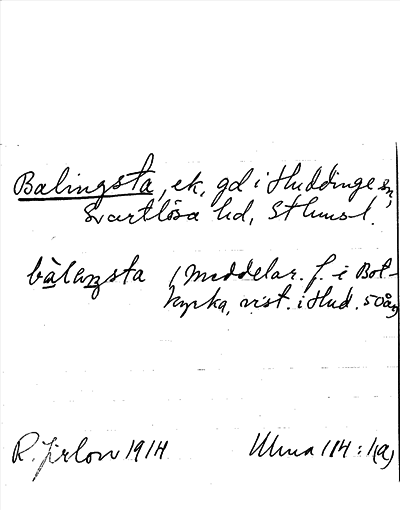 Balingsta, ek, gd i Huddinge sn,
Svartlösa hd, Sthmsl.
bàlaŋsta (meddelar. f. i Bot-
kyrka, vist. i Hud. 50 år)
R. Jirlow 1914 Ulma 114:1(a)